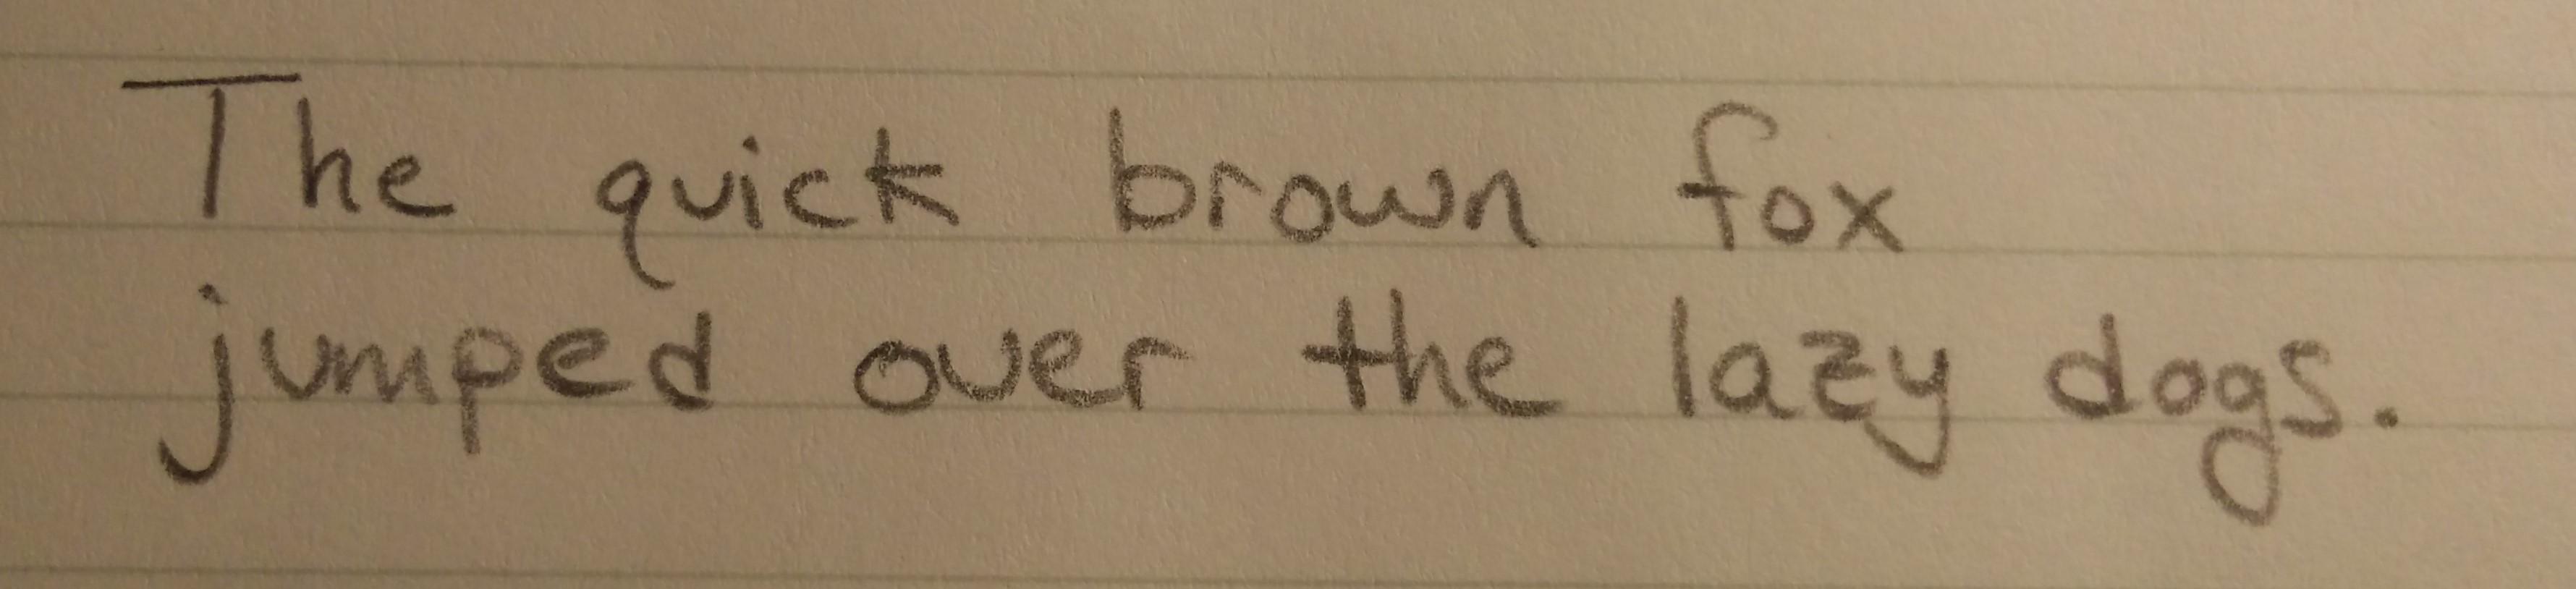 The quick brown fox
jumped over the lazy dogs.